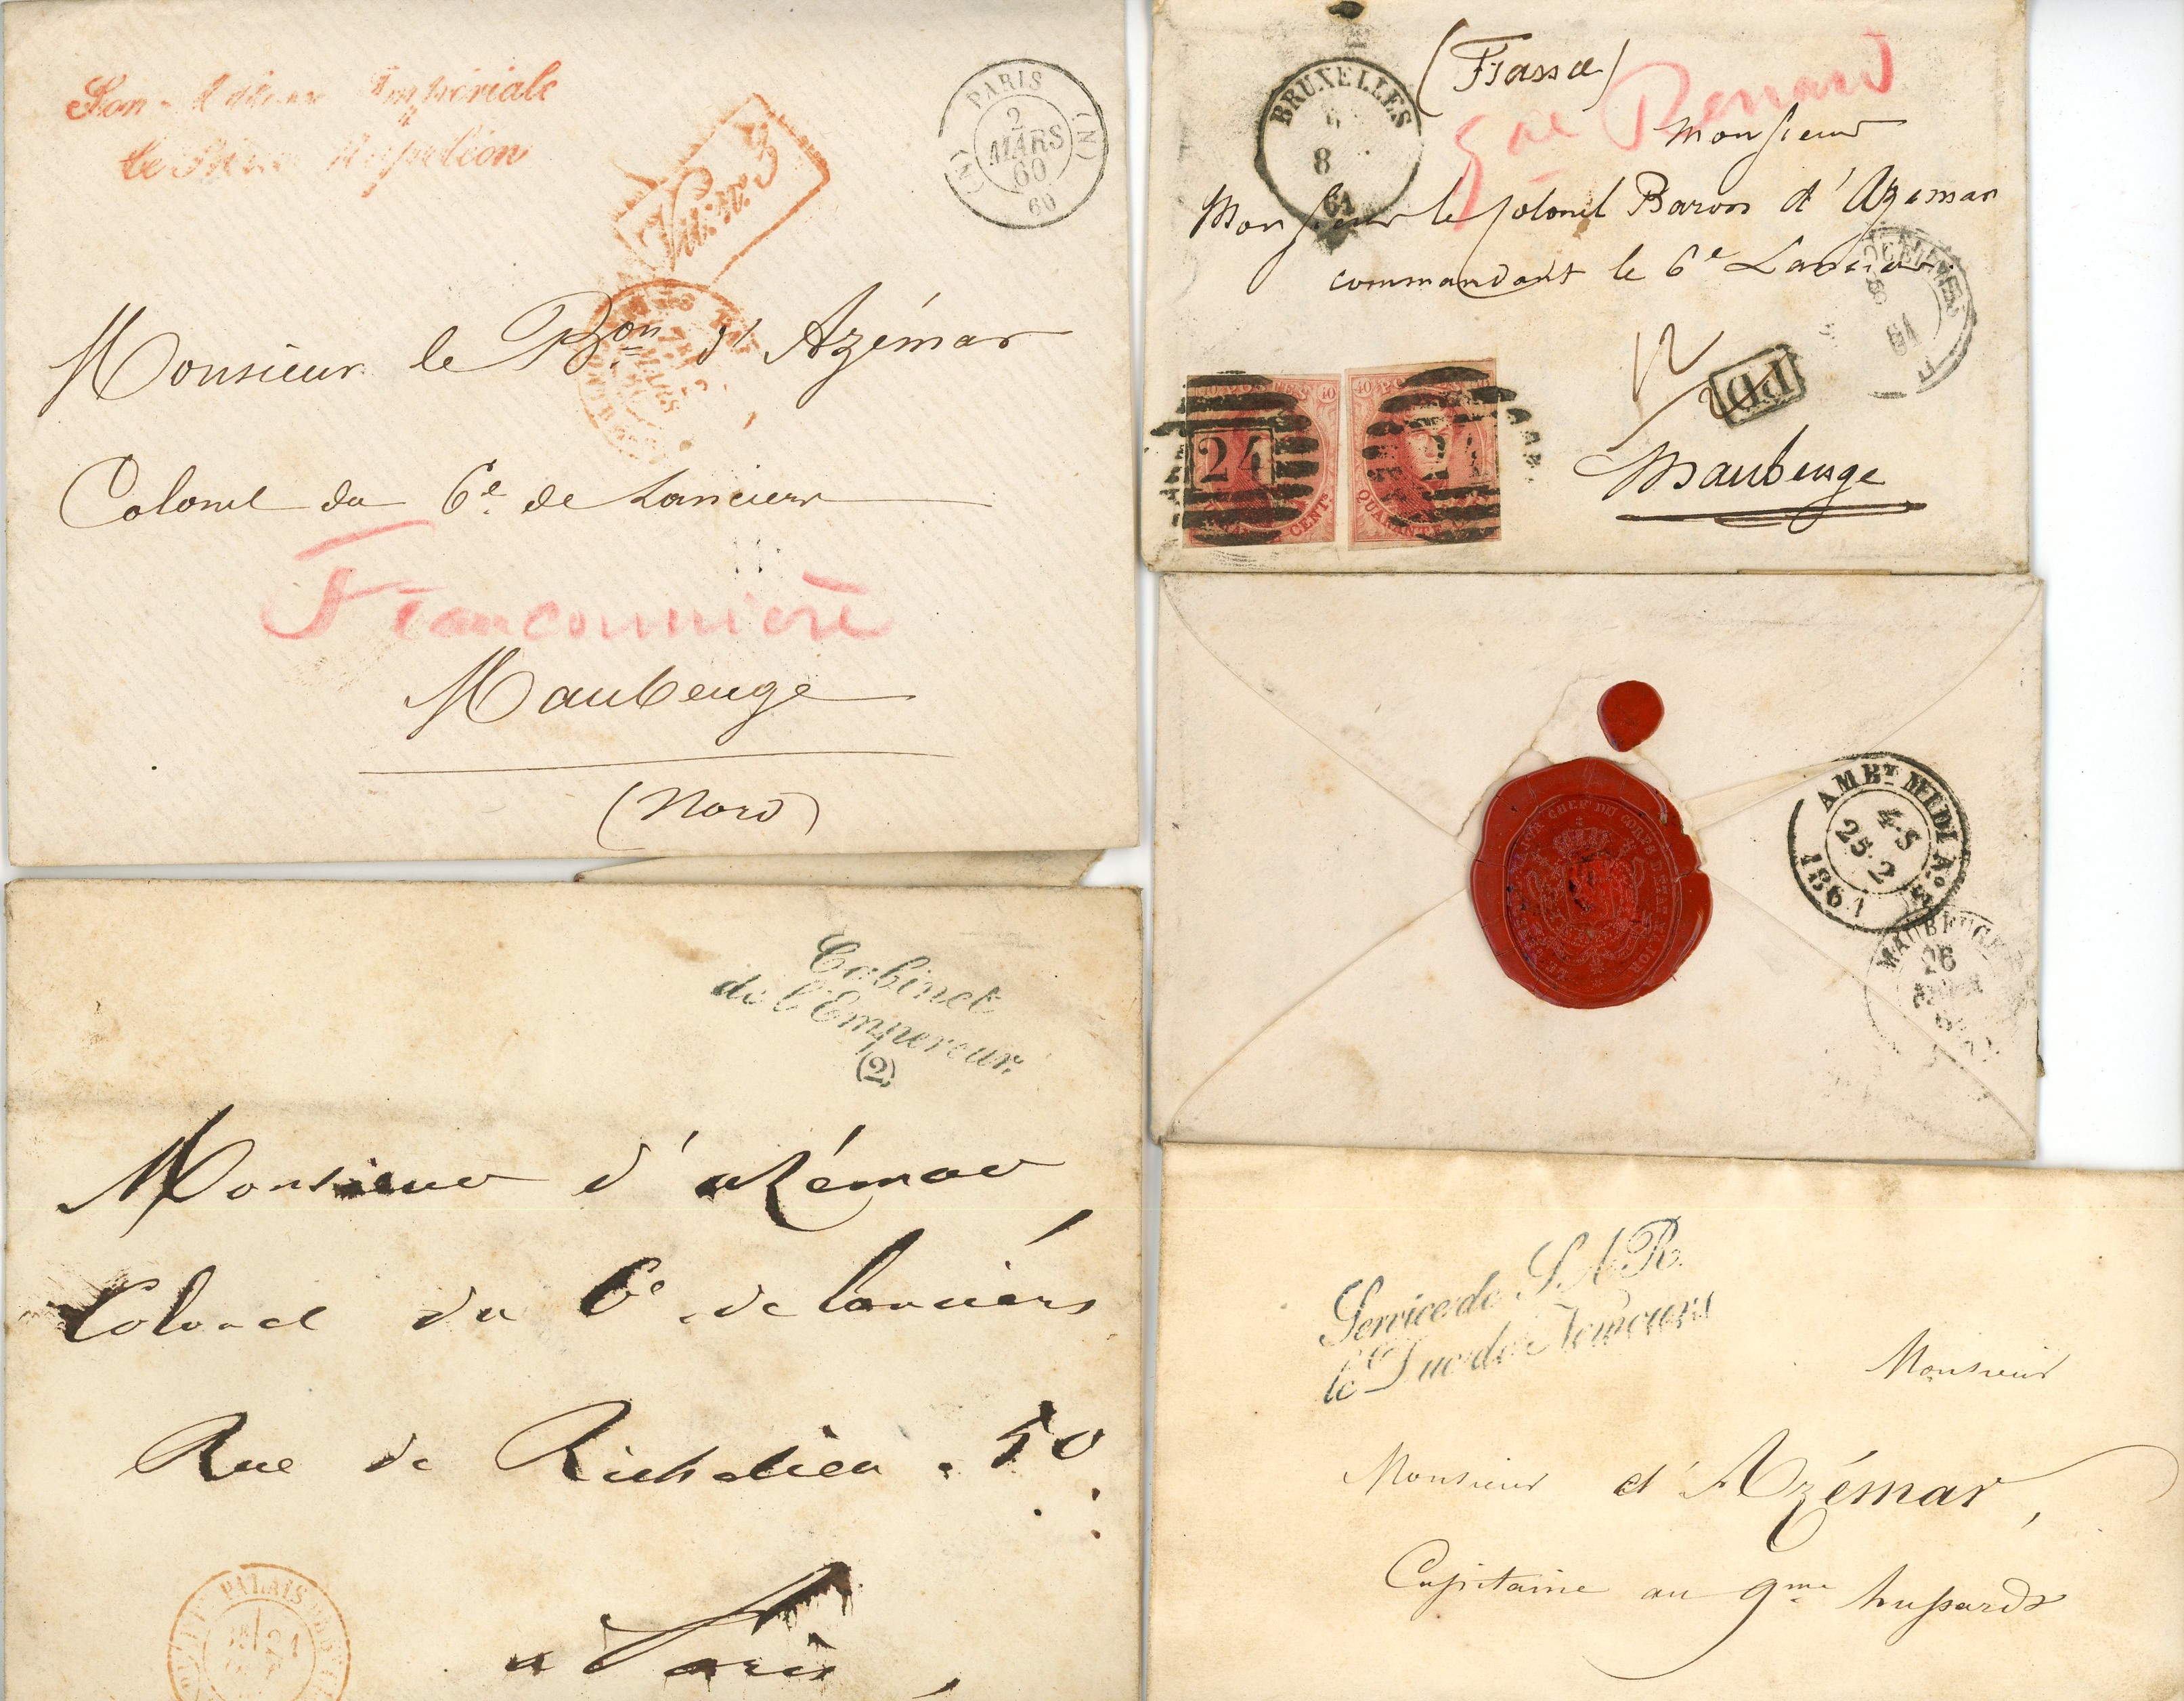 Son Altesse Impériale
le Prince Napoléon
PARIS
2
MARS
60
60
(N) (N)
Monsieur le Bon d'Azémar
Colonel du 6e de Lanciers
Franconnière
Maubeuge
(Nord)
BRUXELLES
8
61
(France)
Gal Renard
Monsieur
Monsieur le Colonel Baron d'Azemar
commandant le 6e Lanciers
61
PD
24
24
40 40
QUARANTE CENTS
Maubeuge
CHEF DU CORPS D'ETAT MAJOR
AMBT MIDI No 2
4-S
25·2
1861
MAUBEUGE
26
Cabinet
de l'Empereur.
(2)
Monsieur d'Azémar
Colonel du 6e de lanciers
Rue de Richelieu . 50
PALAIS
21
a Paris
Service de S.A.R.
le Duc de Nemours
Monsieur
Monsieur d'Azémar,
Capitaine au 9me hussards